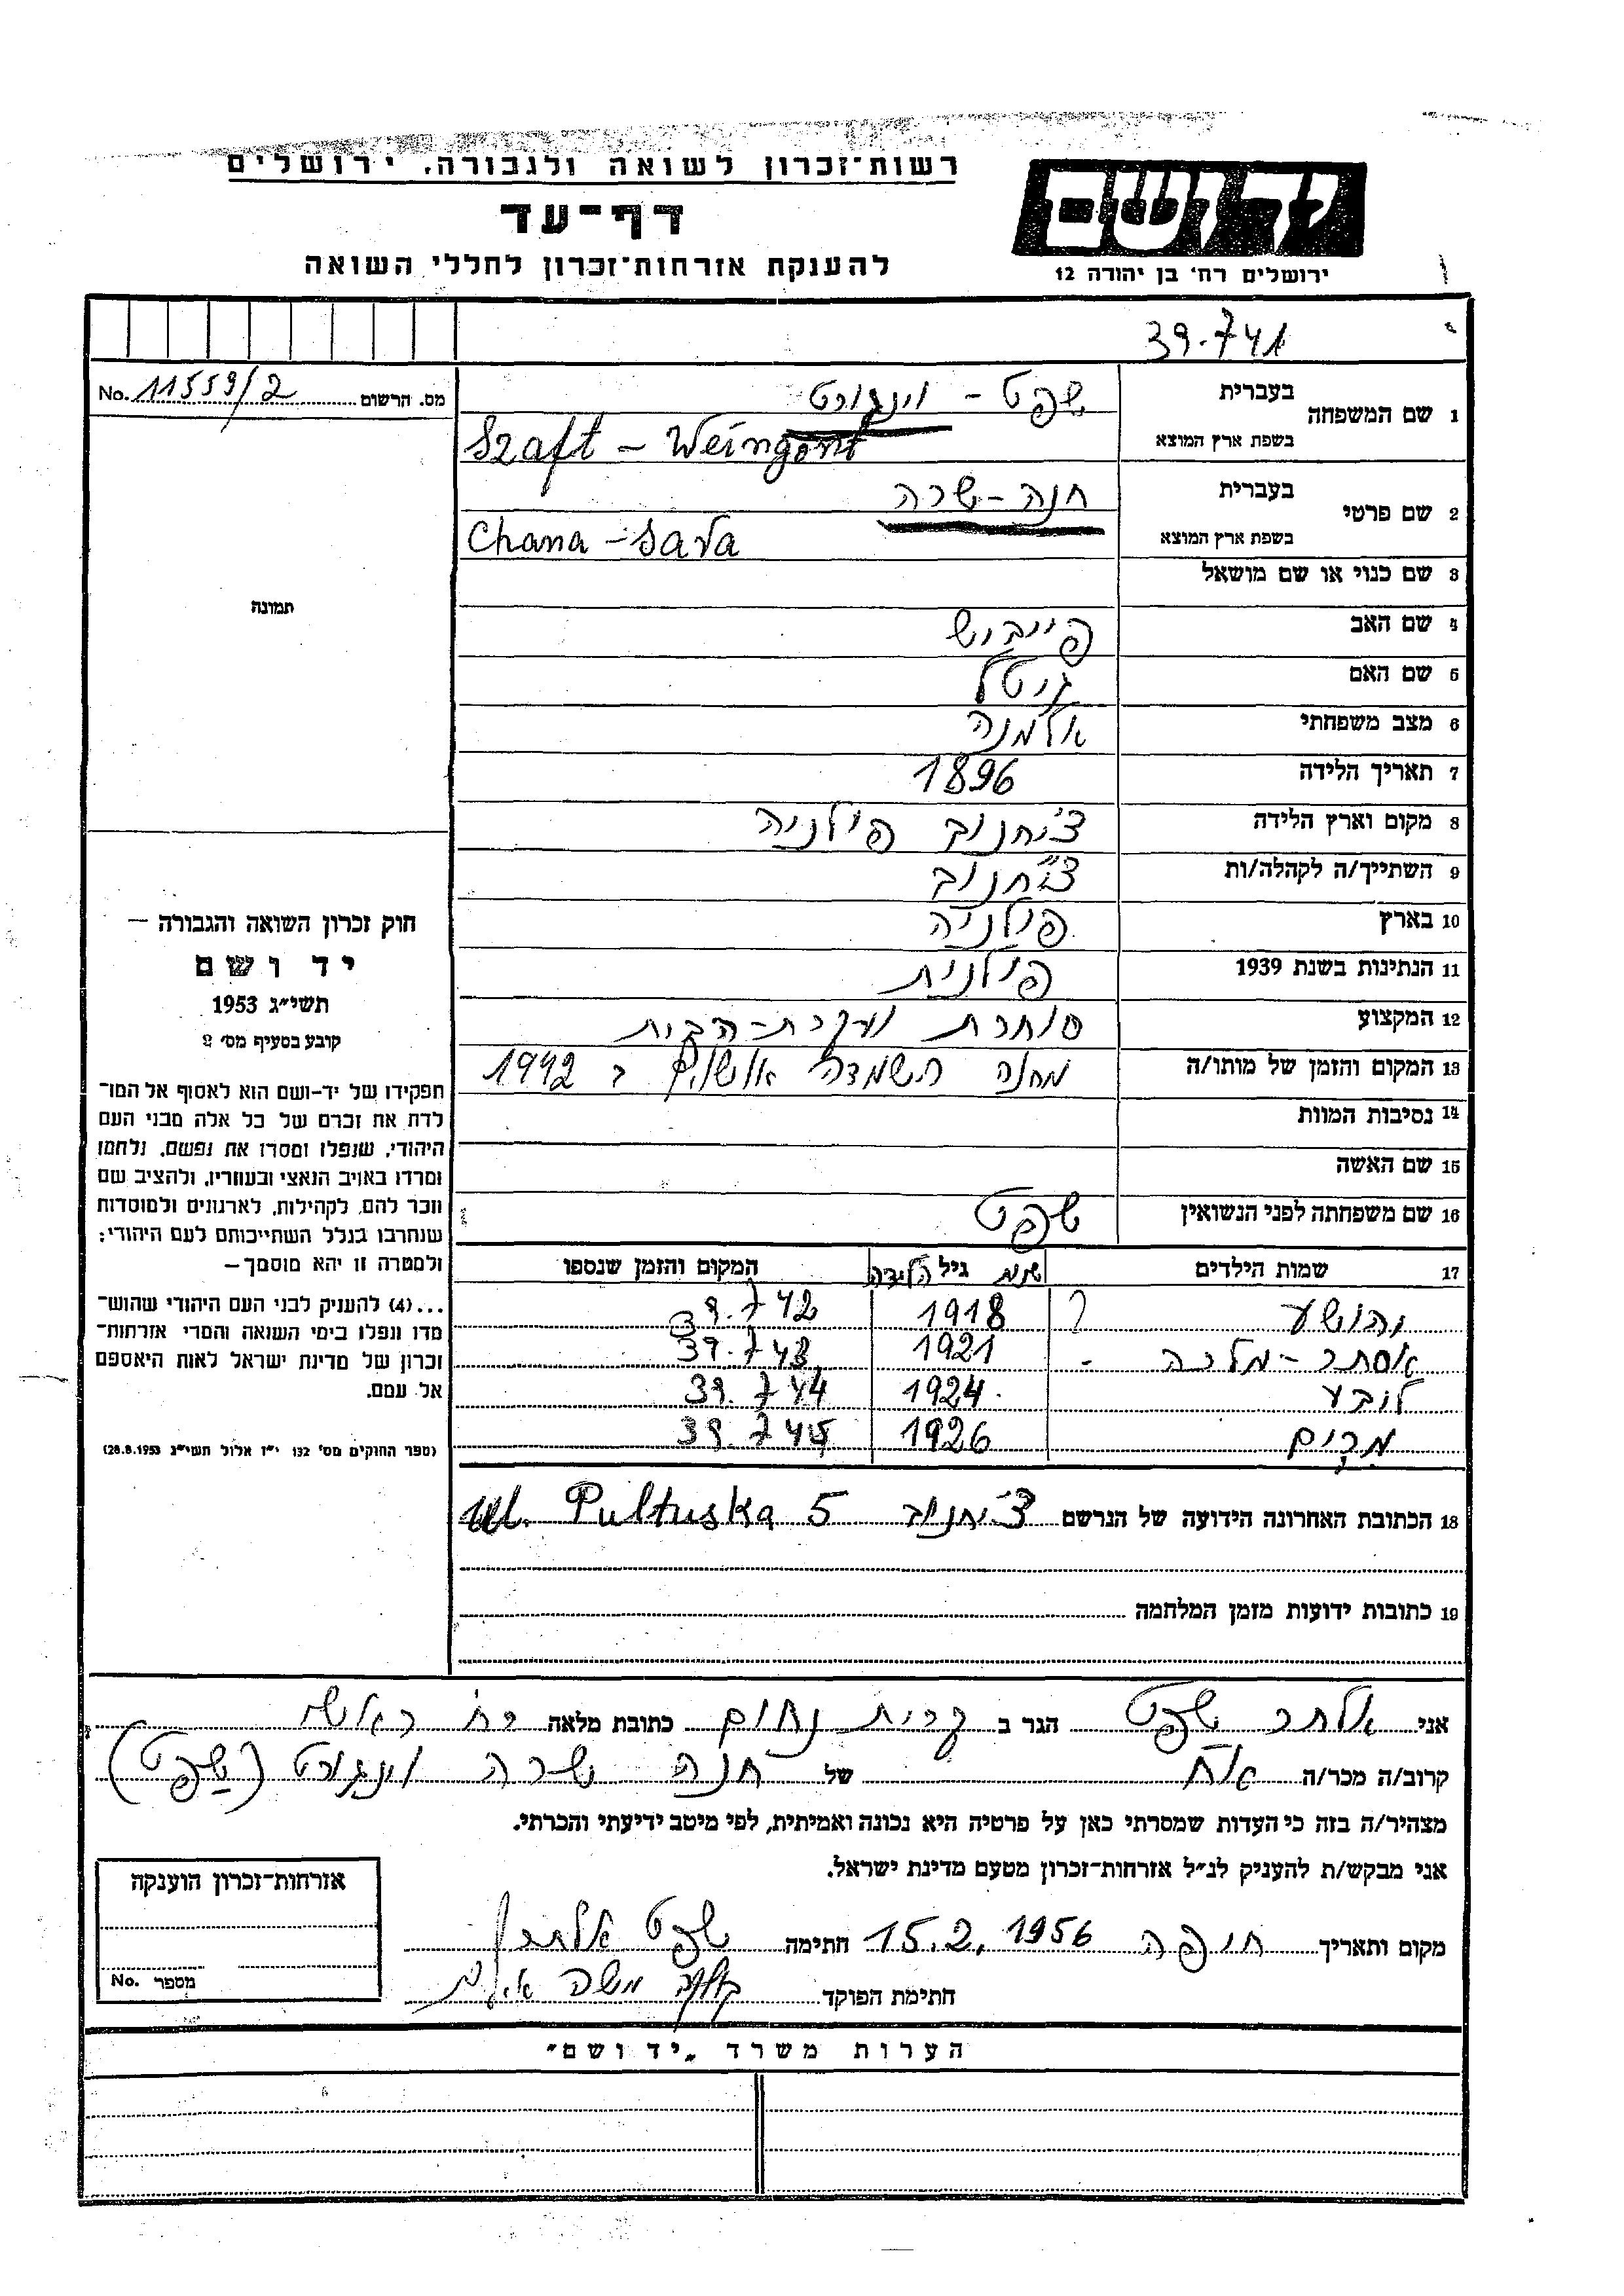 רשות־זכרון לשואה ולגבורה, ירושלים
דף־עד
להענקת אזרחות־זכרון לחללי השואה
יד ושם
ירושלים רח' בן יהודה 12
39.741
מס. הרשום No. 11559/2
1 שם המשפחה בעברית שפט - וינגורט
בשפת ארץ המוצא Szaft - Weingort
2 שם פרטי בעברית חנה-שרה
בשפת ארץ המוצא Chana - Sara
3 שם כנוי או שם מושאל
4 שם האב פייביש
5 שם האם גיטל
6 מצב משפחתי אלמנה
7 תאריך הלידה 1896
8 מקום וארץ הלידה צ'יחנוב פולניה
9 השתייך/ה לקהלה/ות צ'יחנוב
10 בארץ פולניה
11 הנתינות בשנת 1939 פולנית
12 המקצוע סוחרת ועקרת-הבית
13 המקום והזמן של מותו/ה מחנה השמדה אושויץ ב 1942
14 נסיבות המוות
15 שם האשה
16 שם משפחתה לפני הנשואין שפט
17 שמות הילדים שנת גיל הלידה המקום והזמן שנספו
יהושע 1918 39.742
אסתר-מלכה 1921 39.743
לובע 1924 39.744
מרים 1926 39.745
18 הכתובת האחרונה הידועה של הנרשם צ'יחנוב ul. Pultuska 5
19 כתובות ידועות מזמן המלחמה
תמונה
חוק זכרון השואה והגבורה —
יד ושם
תשי״ג 1953
קובע בסעיף מס' 2
תפקידו של יד-ושם הוא לאסוף אל המו־
לדת את זכרם של כל אלה מבני העם
היהודי, שנפלו ומסרו את נפשם, נלחמו
ומרדו באויב הנאצי ובעוזריו, ולהציב שם
וזכר להם, לקהילות, לארגונים ולמוסדות
שנחרבו בגלל השתייכותם לעם היהודי;
ולמטרה זו יהא מוסמך —
...(4) להעניק לבני העם היהודי שהוש־
מדו ונפלו בימי השואה והמרי אזרחות־
זכרון של מדינת ישראל לאות היאספם
אל עמם.
(ספר החוקים מס' 132 י״ז אלול תשי״ג 28.8.1953)
אני אלתר שפט הגר ב קרית נחום כתובת מלאה רח' ראשי
קרוב/ה מכר/ה אח של חנה שרה וינגורט (שפט)
מצהיר/ה בזה כי העדות שמסרתי כאן על פרטיה היא נכונה ואמיתית, לפי מיטב ידיעתי והכרתי.
אני מבקש/ת להעניק לנ״ל אזרחות-זכרון מטעם מדינת ישראל.
מקום ותאריך חיפה 15.2.1956 חתימה שפט אלתר
חתימת הפוקד משה
אזרחות־זכרון הוענקה
מספר No.
הערות משרד „יד ושם״